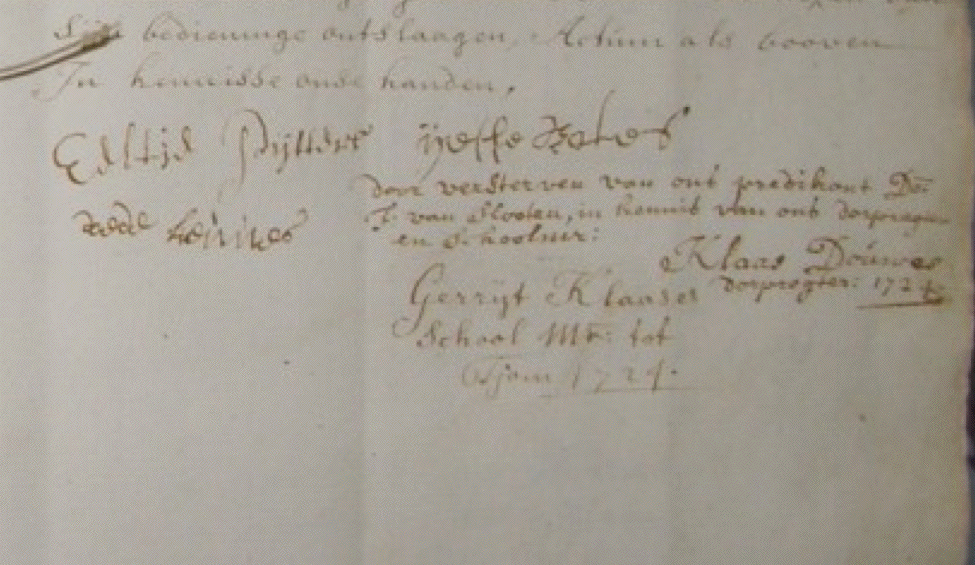 sijn bedieninge ontslaagen, Actum als booven
In kennisse onse handen,
Edltje Pijtters ijeske Bokes
door versterven van ons predikant Do:
F. van Slooten, in kennis van ons dorpregter
en Schoolmr:
Klaas Douwes
dorpregter: 1724:
Gerrijt Klaases
School Mr: tot
Tjom 1724.